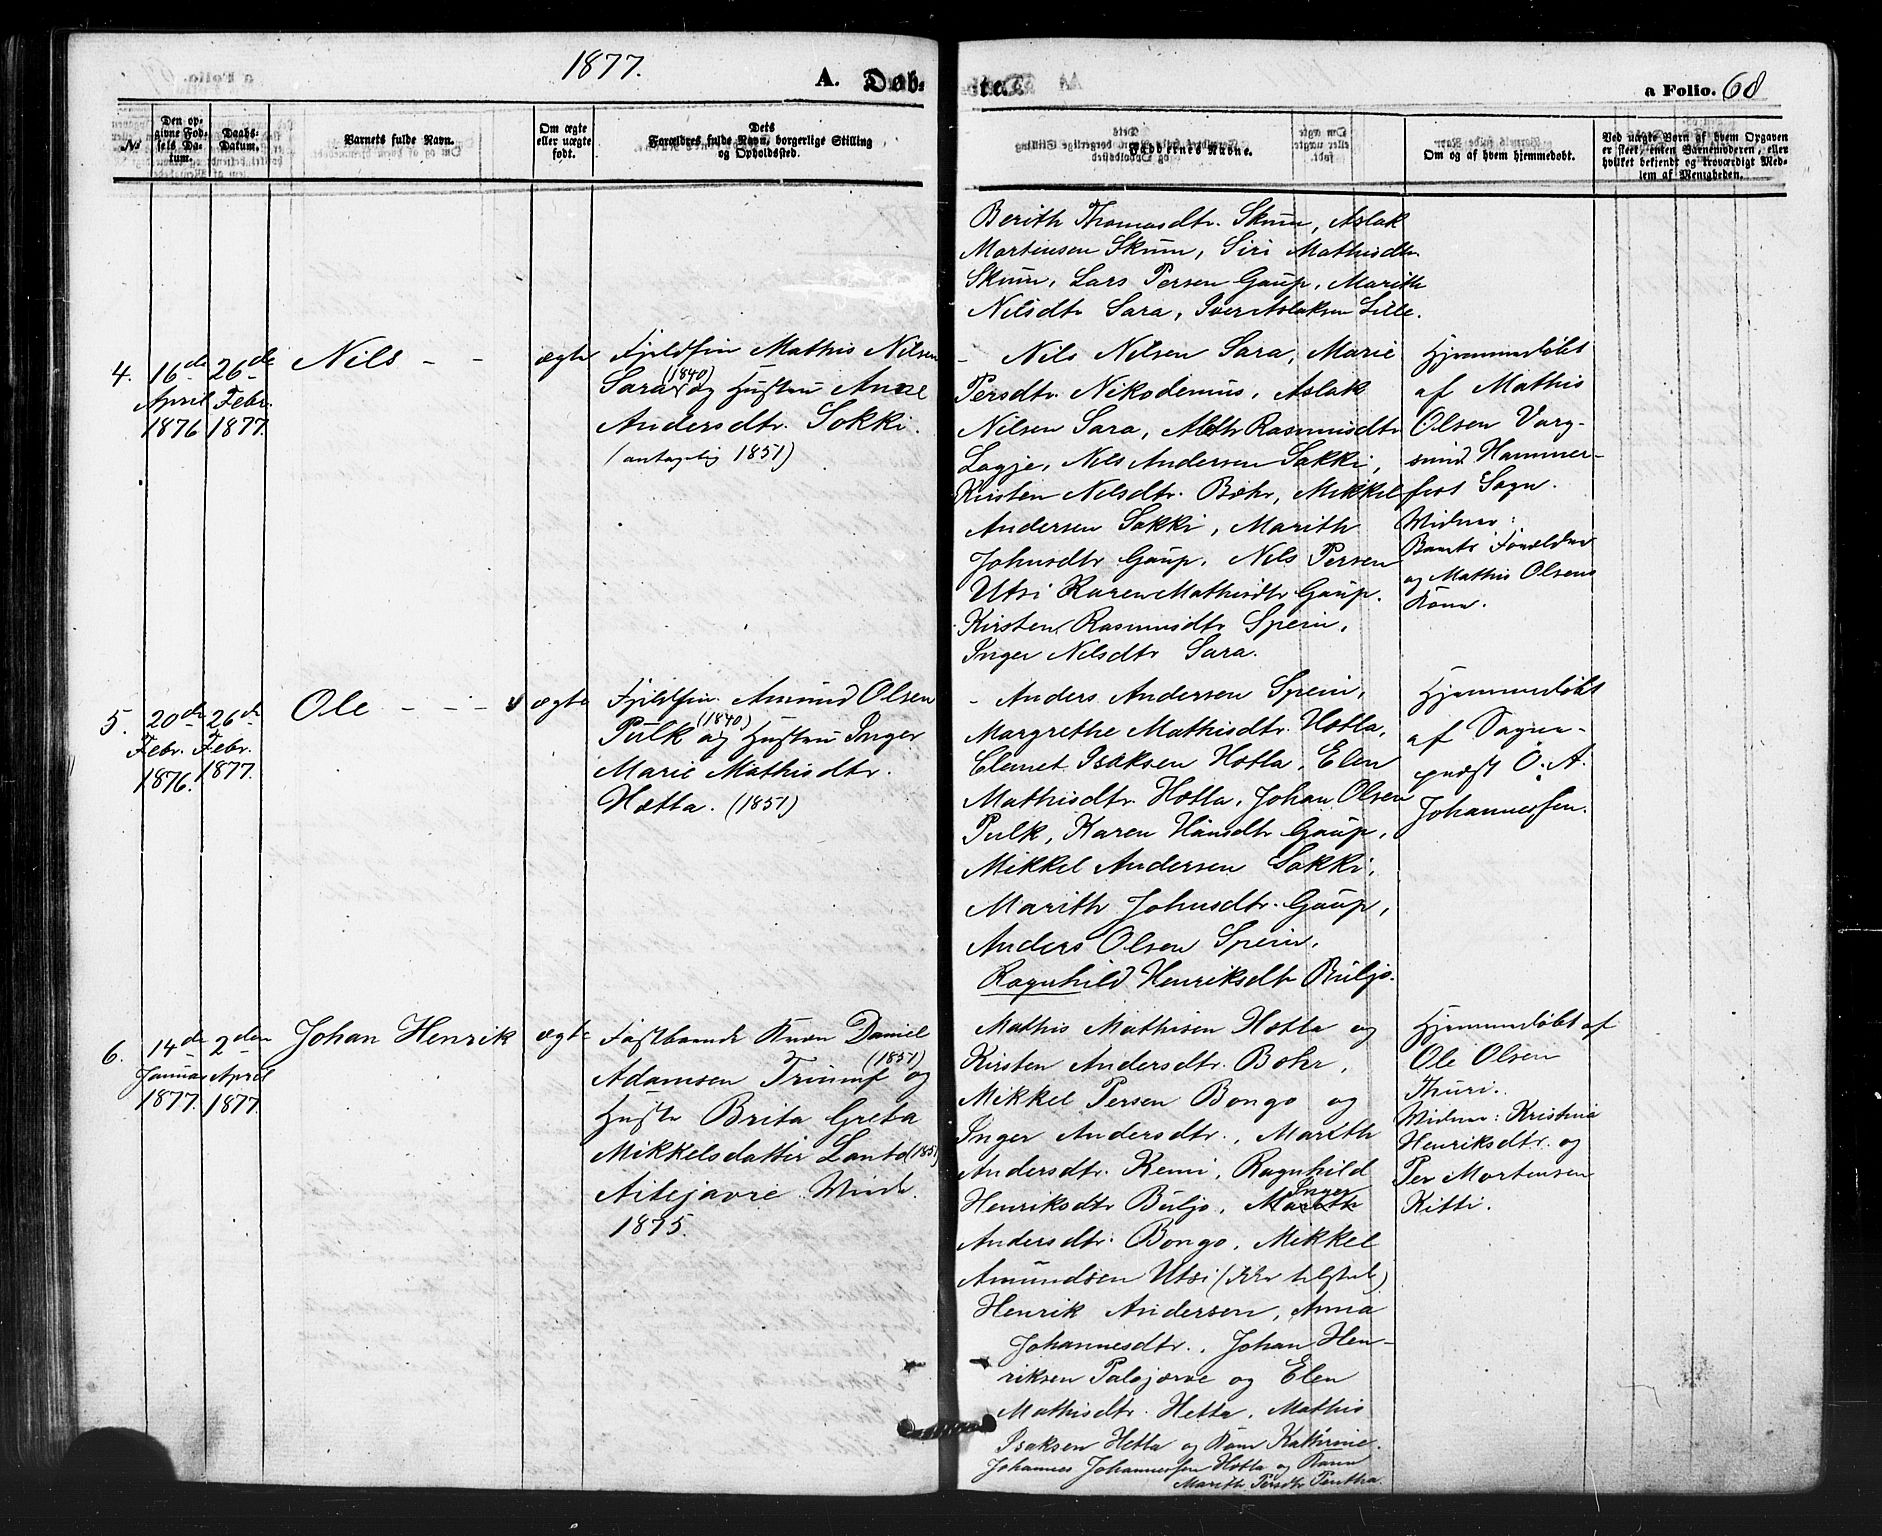 1877.
A. Døb-
te.
a Folio. 68
No
Den op-
givne Fød-
sels Da-
tum.
Daabs-
Datum.
Barnets fulde Navn.
Om ægte
eller uægte
født.
Dets
Forældres fulde Navn, borgerlige Stilling
og Opholdssted.
Faddernes Navne.
Om og af hvem hjemmedøbt.
Ved uægte Børn af hvem Opgaven
er skeet, enten Barnemoderen, eller
hvilket bekjendt og troværdigt Med-
lem af Menigheden.
Berith Thomasdtr. Skum, Aslak
Mortensen Skum, Siri Mathisdtr
Skum, Lars Persen Gaup, Marith
Nilsdtr Sara, Iver Aslaksen Lille.
4.
16de
April
1876
26de
Febr.
1877.
Nils - -
ægte
Fjeldfin Mathis Nilsen
Sara (1840) og Hustru Anne
Andersdtr. Sokki.
(antagelig 1851)
- Nils Nilsen Sara, Marie
Persdtr. Nikodemus, Aslak
Nilsen Sara, Rasmusdtr
Logje, Nils Andersen Sokki,
Kirsten Nilsdtr. Bæhr, Mikkel
Andersen Sokki, Marith
Johnsdtr Gaup, Nils Persen
Utsi Karen Mathisdtr Gaup.
Kirsten Rasmusdtr Spein,
Inger Nilsdtr Sara.
Hjemmedøbt
af Mathis
Olsen Varg-
sund Hammer-
fest Sogn.
Vidner:
Barnets Forældre
og Mathis Olsens
Kone.
5.
20de
Febr.
1876.
26de
Febr.
1877.
Ole - - -
ægte
Fjeldfin Amund Olsen
Pulk (1840) og Hustru Inger
Marie Mathisdtr.
Hætta. (1851)
- Anders Andersen Spein,
Margrethe Mathisdtr. Hætta,
Clemet Isaksen Hætta, Elen
Mathisdtr. Hætta, Johan Olsen
Pulk, Karen Hansdtr Gaup,
Mikkel Andersen Sokki,
Marith Johnsdtr. Gaup,
Anders Olsen Spein,
Ragnhild Henriksdtr Buljo.
Hjemmedøbt
af Sogne-
præst O. A.
Johannessen.
6.
14de
Januar
1877.
2den
April
1877.
Johan Henrik
ægte
Fastboende Kvæn Daniel
Adamsen Triumf (1851) og
Hustr Brita Greta
Mikkelsdatter Lanto (1851)
Aitejavre. Viede
1875.
Mathis Mathisen Hætta og
Kirsten Andersdtr. Bæhr,
Mikkel Persen Bongo og
Inger Andersdtr., Marith
Andersdtr. Kemi, Ragnhild
Henriksdtr Buljo, Marith Inger
Andersdtr. Bongo, Mikkel
Amundsen Utsi (ikke tilstede)
Henrik Andersen, Anna
Johannesdtr., Johan Hen-
riksen Palojærve og Elen
Mathisdtr. Hetta, Mathis
Isaksen Hetta og Kone Kathrine.
Johannes Johannessen Hætta og Kone
Marith Persdtr Pentha.
Hjemmedøbt af
Ole Olsen
Thuri.
Vidner: Kristina
Henriksdtr. og
Per Mortensen
Kitti.